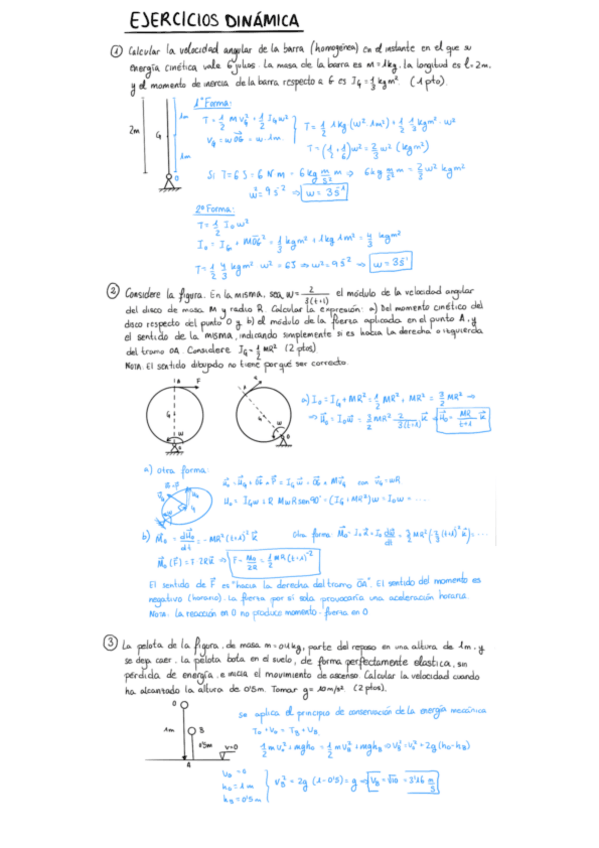 EJERCICIOS DINÁMICA
① Calcular la velocidad angular de la barra (homogénea) en el instante en el que su
energía cinética vale 6 julios. La masa de la barra es m=1kg. La longitud es l=2m.
y el momento de inercia de la barra respecto a G es I_G = 1/3 kgm². (1 pto).
1ª Forma:
T = 1/2 M v_G² + 1/2 I_G w²
v_G = w OG = w · 1m
T = 1/2 1kg (w² 1m²) + 1/2 1/3 kgm² · w²
T = (1/2 + 1/6) w² = 2/3 w² (kgm²)
2m
G
1m
1m
O
Si T = 6J = 6 N m = 6 kg m/s² m ⇒ 6 kg m/s² m = 2/3 w² kgm²
w² = 9 s⁻² ⇒ w = 3 s⁻¹
2ª Forma:
T = 1/2 I_O w²
I_O = I_G + MOG² = 1/3 kgm² + 1kg 1m² = 4/3 kgm²
T = 1/2 4/3 kgm² w² = 6J ⇒ w² = 9 s⁻² ⇒ w = 3 s⁻¹
② Considere la figura. En la misma, sea w = 2/3(t+1) el módulo de la velocidad angular
del disco de masa M y radio R. Calcular la expresión: a) Del momento cinético del
disco respecto del punto O y b) el módulo de la fuerza aplicada en el punto A, y
el sentido de la misma, indicando simplemente si es hacia la derecha o izquierda
del tramo OA. Considere I_G = 1/2 MR² (2 ptos)
NOTA: El sentido dibujado no tiene por qué ser correcto.
A F
G
w
a) I_O = I_G + MR² = 1/2 MR² + MR² = 3/2 MR² ⇒
⇒ H_O = I_O w = 3/2 MR² 2/3(t+1) k ⇒ H_O = MR/t+1 k
a) Otra forma:
H_O = I_G w + R M w R sen90° = (I_G + MR²) w = I_O w = ....
b) M_O = dH_O/dt = -MR² (t+1)⁻² k
Otra forma:
M_O (F) = F 2R k ⇒ F = M_O/2R = 1/2 MR (t+1)⁻²
El sentido de F es "hacia la derecha del tramo OA". El sentido del momento es
negativo (horario). La fuerza por si sola provocaría una aceleración horaria.
NOTA: La reacción en O no produce momento · fuerza en O
③ La pelota de la figura, de masa m=0'1kg, parte del reposo en una altura de 1m, y
se deja caer. La pelota bota en el suelo, de forma perfectamente elástica, sin
pérdida de energía, e inicia el movimiento de ascenso. Calcular la velocidad cuando
ha alcanzado la altura de 0'5m. Tomar g = 10 m/s². (2 ptos).
O
1m
B
0'5m
v=0
A
Se aplica el principio de conservación de la energía mecánica
T_O + V_O = T_B + U_B
1/2 m v_O² + mgh_O = 1/2 m v_B² + mgh_B ⇒ v_B² = v_O² + 2g (h_O - h_B)
h_O = 1m
h_B = 0'5m
v_B² = 2g (1 - 0'5) = g ⇒ V_B = √10 = 3'16 m/s